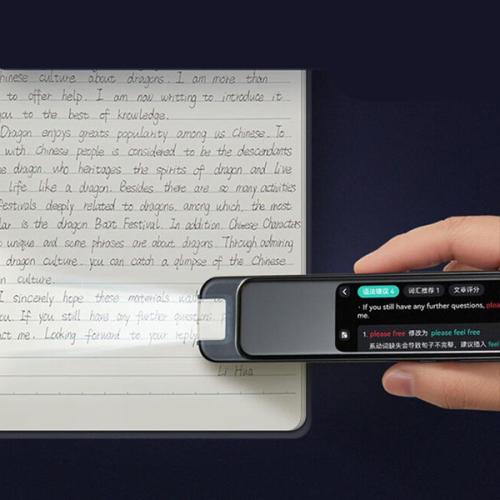 hinese culture about dragons. I am more than
to offer help. I am now writting to introduce it
you to the best of knowledge.
Dragon enjoys greats popularity among us Chinese. To
with, Chinese people is considered to be the descendants
e dragon who heritages the spirits of dragon and live
life like a dragon. Besides there are so many activities
festivals deeply related to dragons, among which, the most
lar is the dragon Boat Festival. In addition, Chinese Characters
unique and some phrases are about dragons. Through admiring
dragon culture, you can catch a glimpse of the Chinese
n culture.
I sincerely hope these materials
ou. If you still have any further questions
act me. Looking forward to your reply
Li Hua
语法错误 4 词汇推荐 1 文章评分
· If you still have any further questions, plea
me.
1. please free 修改为 please feel free
系动词缺失会导致句子不完整，建议插入 feel